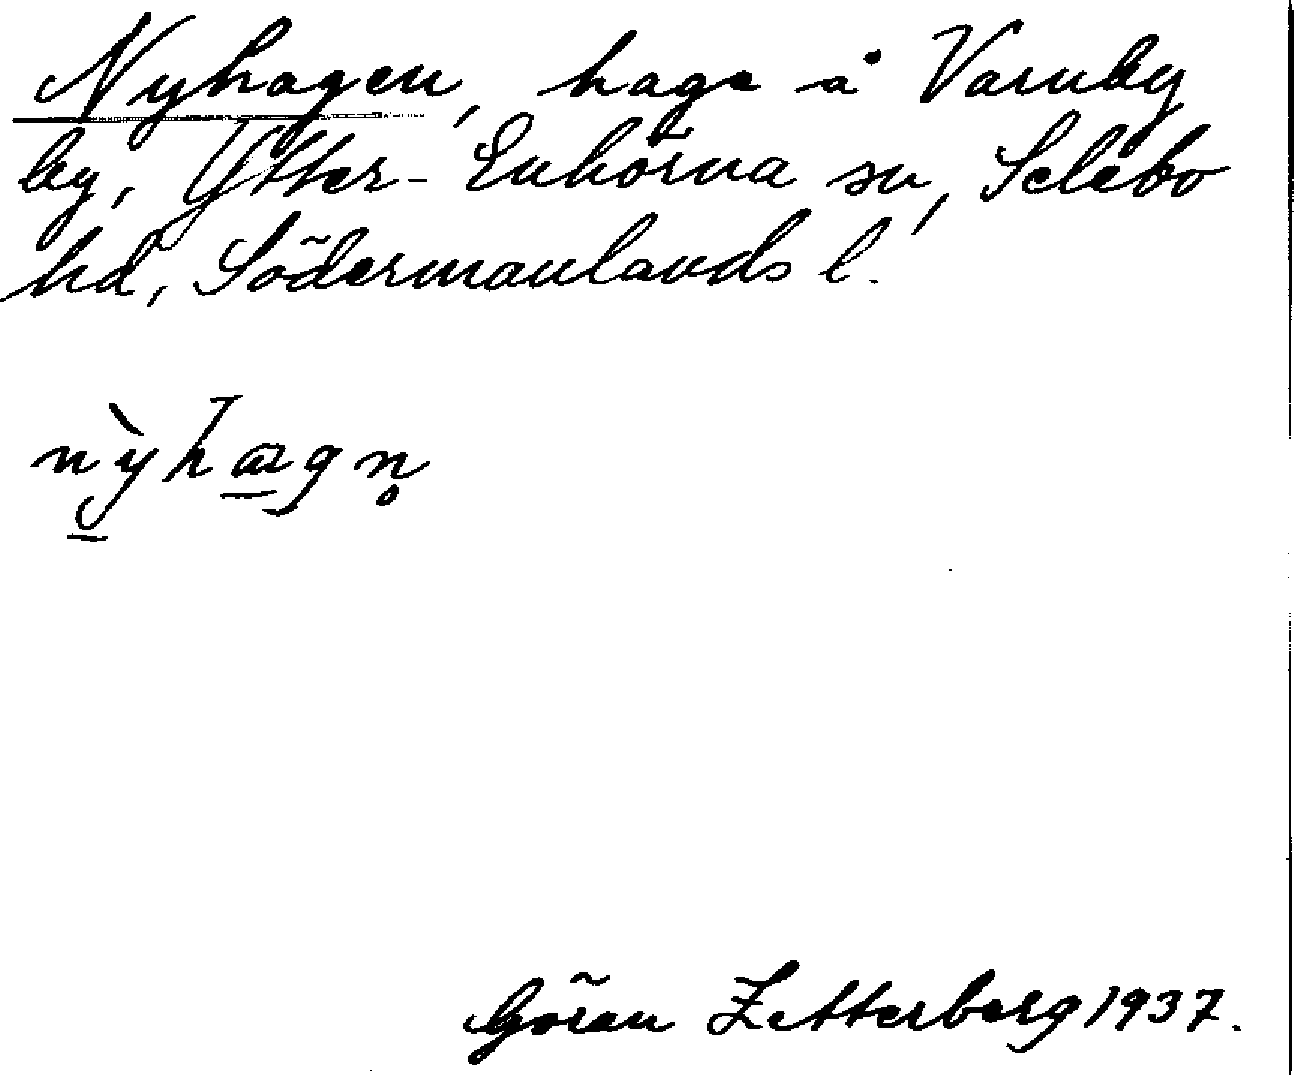 Nyhagen, hage å Varnby
by, Ytter-Enhörna sn, Selebo
hd, Södermanlands l.
nỳhagn̥
Göran Zetterberg 1937.